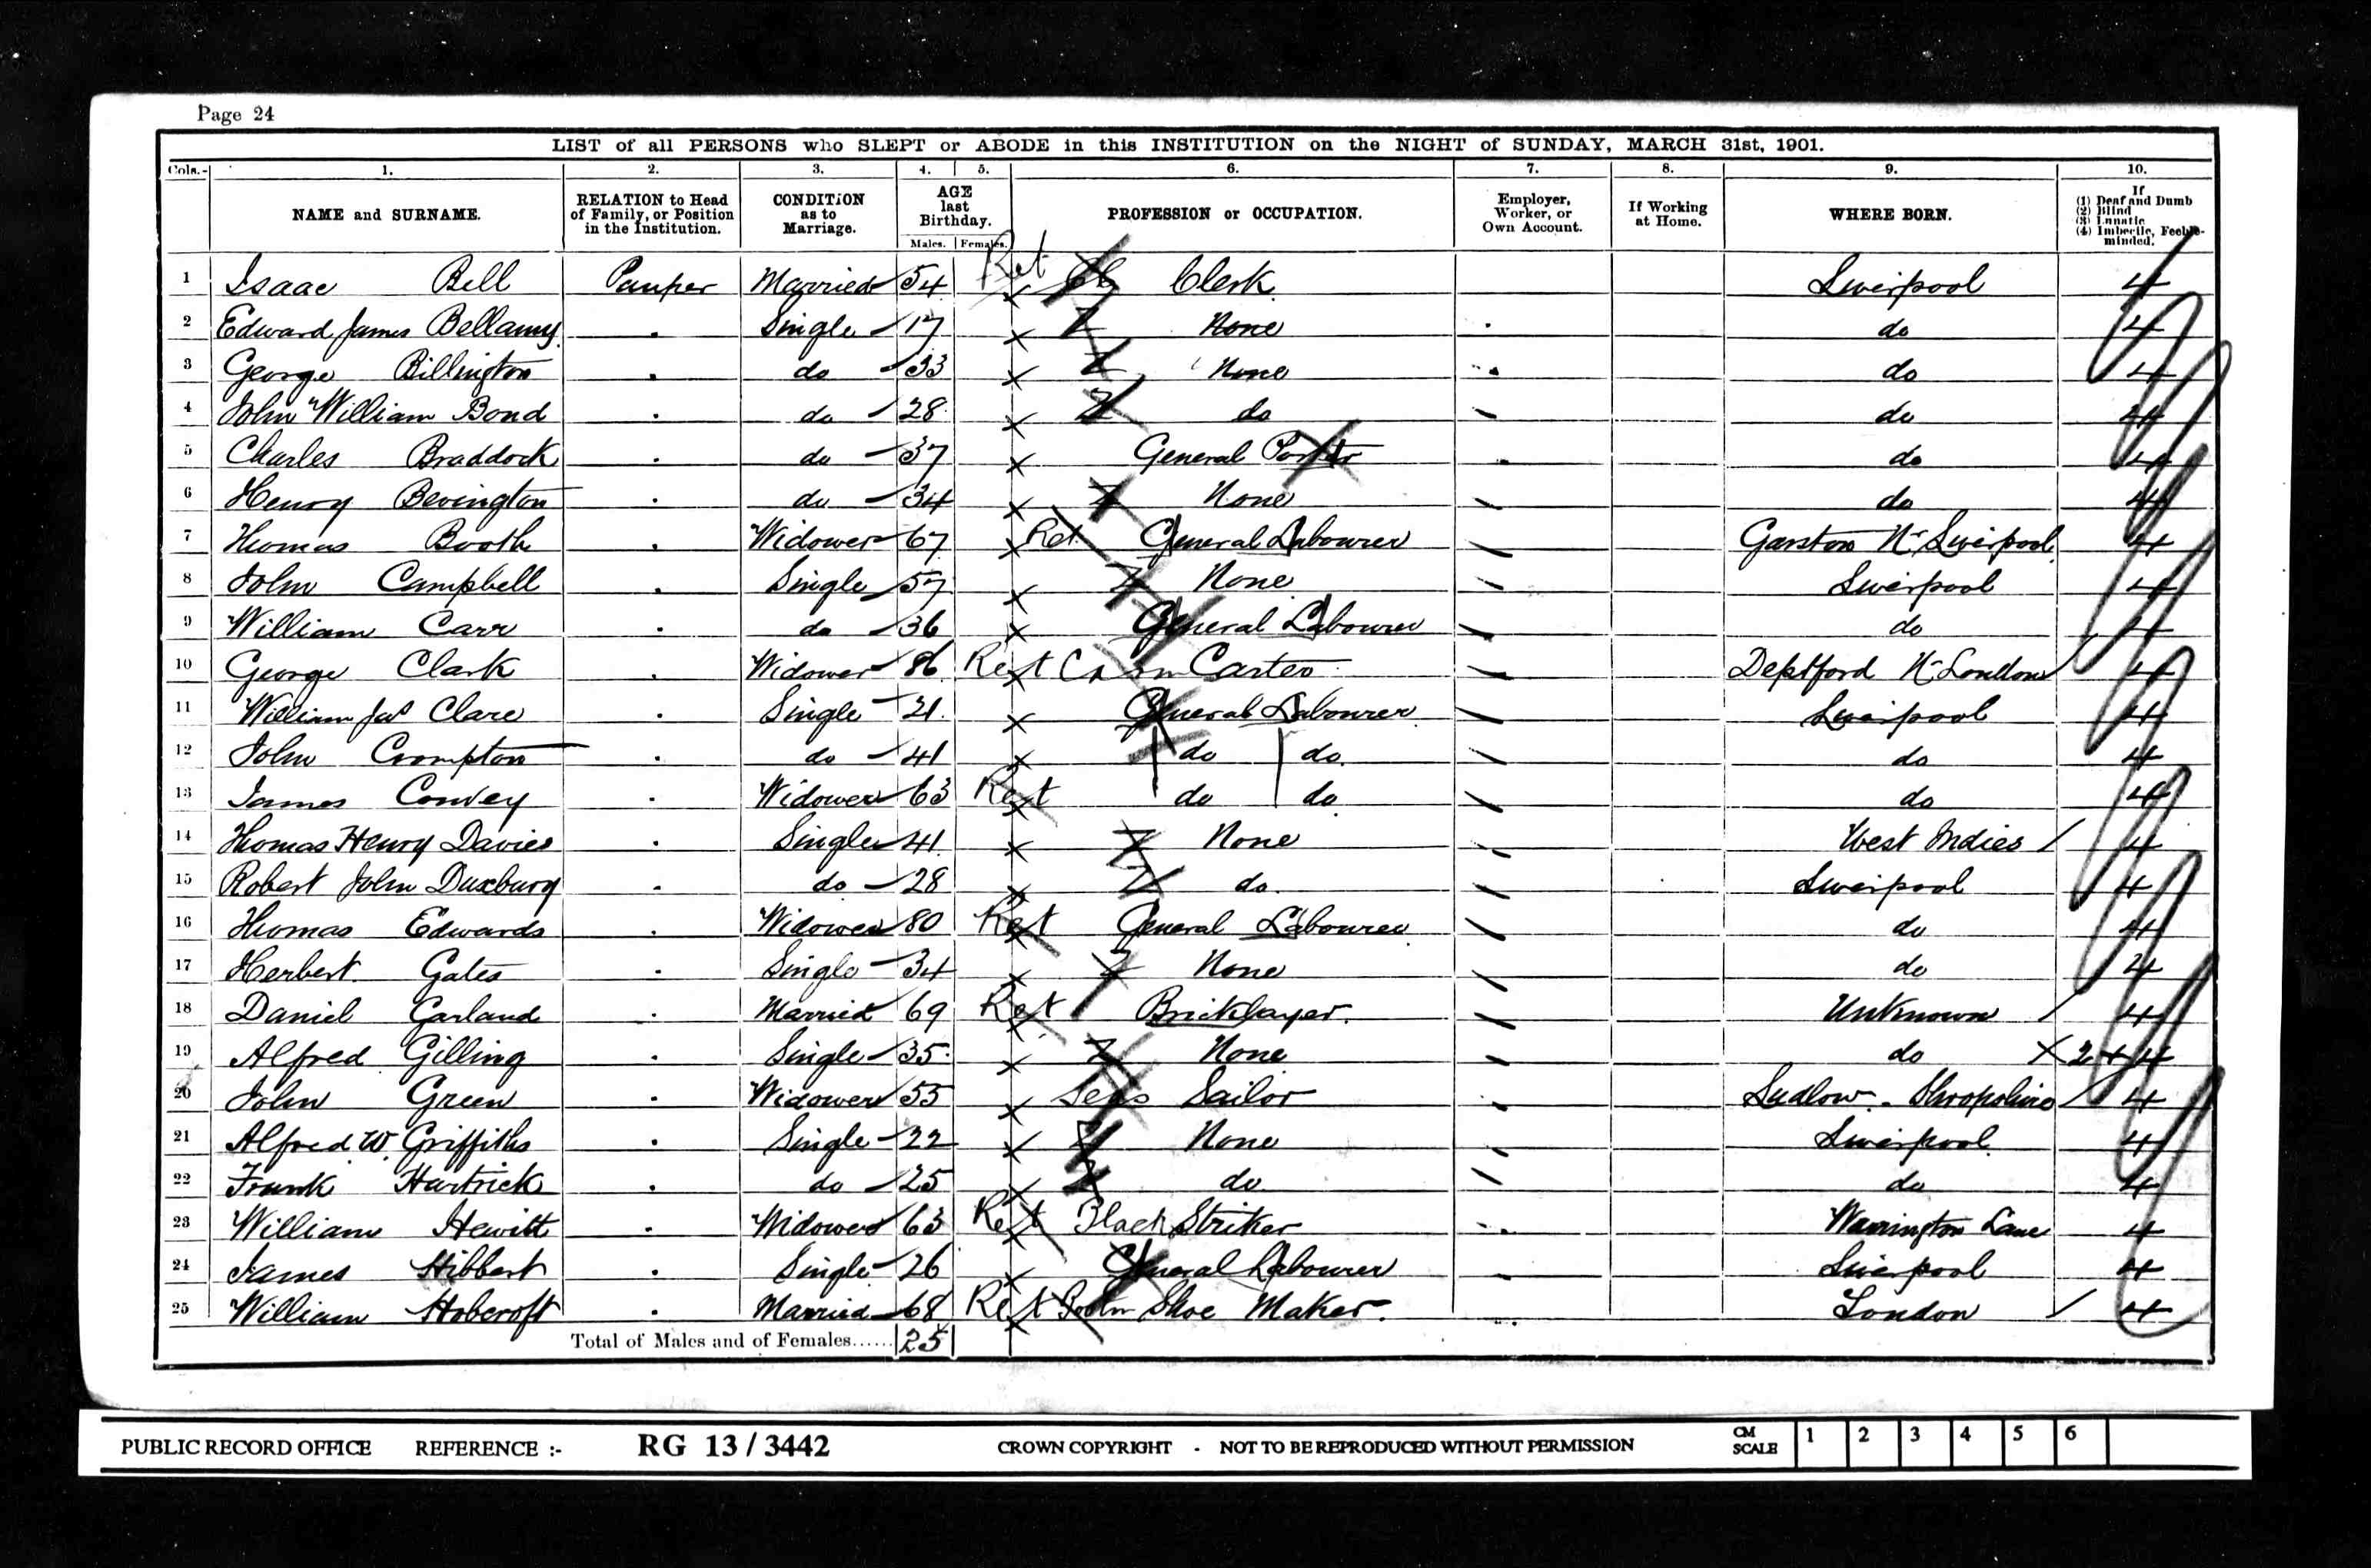 Page 24
LIST of all PERSONS who SLEPT or ABODE in this INSTITUTION on the NIGHT of SUNDAY, MARCH 31st, 1901.
Cols.- 1. 2. 3. 4. 5. 6. 7. 8. 9. 10.
NAME and SURNAME. RELATION to Head of Family, or Position in the Institution. CONDITION as to Marriage. AGE last Birthday. Males. Females. PROFESSION or OCCUPATION. Employer, Worker, or Own Account. If Working at Home. WHERE BORN. If (1) Deaf and Dumb (2) Blind (3) Lunatic (4) Imbecile, Feeble-minded.
1 Isaac Bell Pauper Married 54 Ret Clerk Liverpool 4
2 Edward James Bellamy . Single 17 X None do 4
3 George Billington . do 33 X None do 4
4 John William Bond . do 28 X do do 4
5 Charles Braddock . do 37 X General Porter do 4
6 Henry Bevington . do 34 X None do 4
7 Thomas Booth . Widower 67 X Ret General Labourer Garston Nr Liverpool 4
8 John Campbell . Single 57 X None Liverpool 4
9 William Carr . do 36 X General Labourer do 4
10 George Clark . Widower 86 Ret Carter Deptford Nr London 4
11 William Jas Clare . Single 21 X General Labourer Liverpool 4
12 John Crompton . do 41 X do do do 4
13 James Convey . Widower 63 Ret do do do 4
14 Thomas Henry Davies . Single 41 X None West Indies / 4
15 Robert John Duxbury . do 28 X do Liverpool 4
16 Thomas Edwards . Widower 80 Ret General Labourer do 4
17 Herbert Gates . Single 34 X None do 4
18 Daniel Garland . Married 69 Ret Bricklayer Unknown / 4
19 Alfred Gilling . Single 35 X None do X 2 + 4
20 John Green . Widower 55 X Seas Sailor Ludlow. Shropshire / 4
21 Alfred W. Griffiths . Single 22 X None Liverpool 4
22 Frank Hartrick . do 25 X do do 4
23 William Hewitt . Widower 63 Ret Black Striker Warrington Lanc 4
24 James Hibbert . Single 26 X General Labourer Liverpool 4
25 William Hobcroft . Married 68 Ret Shoe Maker. London / 4
Total of Males and of Females...... 25
PUBLIC RECORD OFFICE REFERENCE :- RG 13 / 3442 CROWN COPYRIGHT - NOT TO BE REPRODUCED WITHOUT PERMISSION CM SCALE 1 2 3 4 5 6